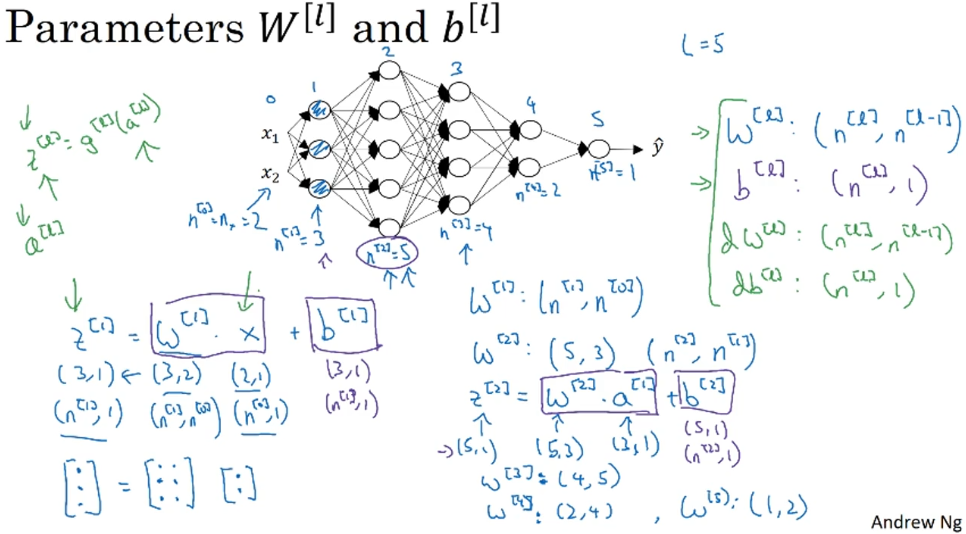 Parameters W^[l] and b^[l]
L=5
0 1 2 3 4 5
x₁
x₂
ŷ
n^[0]=nₓ=2
n^[1]=3
n^[2]=5
n^[3]=4
n^[4]=2
n^[5]=1
z^[l]=g^[l](a^[l])
a^[l]
→ W^[l]: (n^[l], n^[l-1])
→ b^[l]: (n^[l], 1)
dW^[l]: (n^[l], n^[l-1])
db^[l]: (n^[l], 1)
z^[1] = W^[1] · x + b^[1]
(3,1) ← (3,2) (2,1) (3,1)
(n^[1],1) (n^[1],n^[0]) (n^[0],1) (n^[1],1)
[⋮] = [⋮⋮] [:]
W^[1]: (n^[1], n^[0])
W^[2]: (5,3) (n^[2], n^[1])
z^[2] = W^[2] · a^[1] + b^[2]
→(5,1) (5,3) (3,1) (5,1)
(n^[2],1)
W^[3]: (4,5)
W^[4]: (2,4) , W^[5]: (1,2)
Andrew Ng